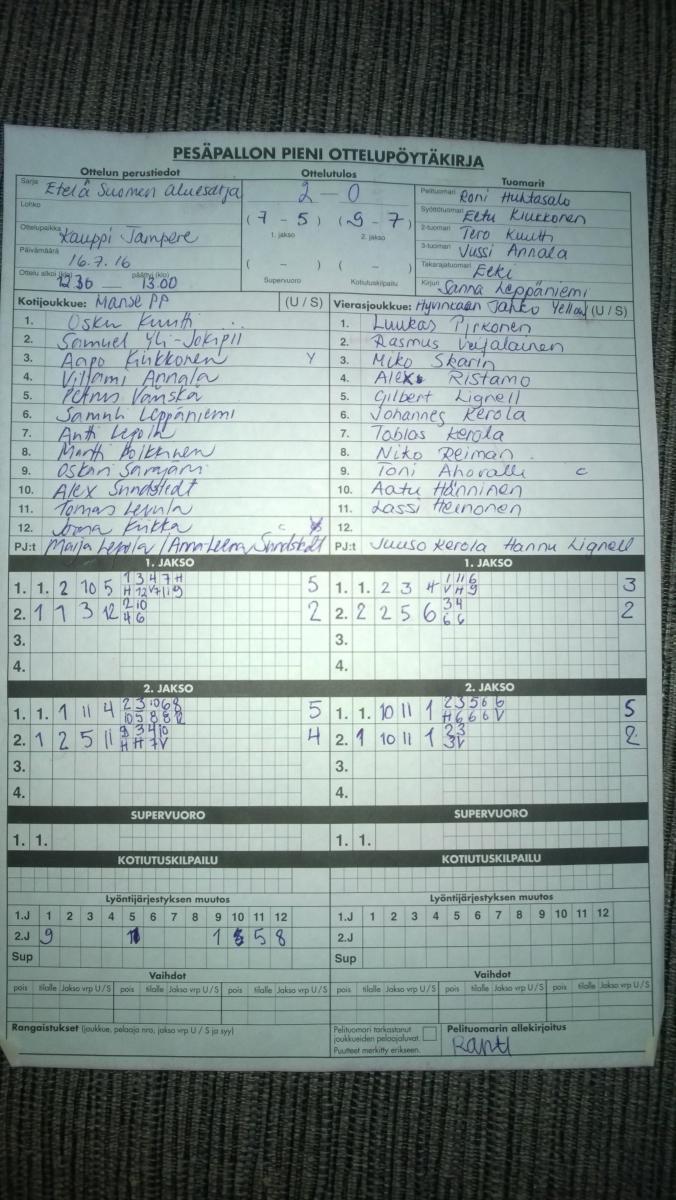 PESÄPALLON PIENI OTTELUPÖYTÄKIRJA
Ottelun perustiedot Ottelutulos Tuomarit
Sarja Etelä Suomen aluesarja
2 - 0
Pelituomari Roni Huhtasalo
Lohko
(7 - 5) (9 - 7)
Syöttötuomari Eetu Kiukkonen
1. jakso 2. jakso
2-tuomari Tero Kuutti
Ottelupaikka Kauppi Tampere
3-tuomari Jussi Annala
Päivämäärä 16.7.16
( - ) ( - )
Takarajatuomari Eeki
Ottelu alkoi (klo) 12.30 — päättyi (klo) 13.00
Supervuoro Kotiutuskilpailu
Kirjuri Sanna Leppäniemi
Kotijoukkue: Manse PP (U / S) Vierasjoukkue: Hyvinkään Tahko Yellow (U / S)
1. Osku Kuutti 1. Luukas Pirkonen
2. Samuel Yli-Jokipii 2. Rasmus Veijalainen
3. Aapo Kiukkonen Y 3. Miko Skarin
4. Viljami Annala 4. Alex Ristamo
5. Petrus Vänskä 5. Gilbert Lignell
6. Samuli Leppäniemi 6. Johannes Kerola
7. Antti Lepola 7. Tobias Kerola
8. Martti Polkkinen 8. Niko Reiman
9. Oskari Sarajärvi 9. Toni Ahovalli c
10. Alex Sundstedt 10. Aatu Hänninen
11. Tomas Lepola 11. Lassi Heinonen
12. Joona Kiikka c 12.
PJ:t Maija Lepola / Anna-Leena Sundstedt PJ:t Juuso Kerola Hannu Lignell
1. JAKSO 1. JAKSO
1 3 4 7 H 1 11 6
1. 1. 2 10 5 H 12 V 7 11 9 5 1. 1. 2 3 4 V H 9 3
2 10 3 4
2. 1 1 3 12 4 6 2 2. 2 2 5 6 6 6 2
3. 3.
4. 4.
2. JAKSO 2. JAKSO
2 3 10 6 8 2 3 5 6 6
1. 1. 1 11 4 10 5 8 8 12 5 1. 1. 10 11 1 H 6 6 6 V 5
9 3 4 10 2 3
2. 1 2 5 11 H H 7 V 4 2. 1 10 11 1 3 V 2
3. 3.
4. 4.
SUPERVUORO SUPERVUORO
1. 1. 1. 1.
KOTIUTUSKILPAILU KOTIUTUSKILPAILU
Lyöntijärjestyksen muutos Lyöntijärjestyksen muutos
1.J 1 2 3 4 5 6 7 8 9 10 11 12 1.J 1 2 3 4 5 6 7 8 9 10 11 12
2.J 9 1 5 8 2.J
Sup Sup
Vaihdot Vaihdot
pois tilalle Jakso vrp U / S pois tilalle Jakso vrp U / S pois tilalle Jakso vrp U / S pois tilalle Jakso vrp U / S pois tilalle Jakso vrp U / S pois tilalle Jakso vrp U / S
Rangaistukset (joukkue, pelaaja nro, jakso vrp U / S ja syy)
Pelituomari tarkastanut
joukkueiden pelaajaluvat.
Puutteet merkitty erikseen.
Pelituomarin allekirjoitus